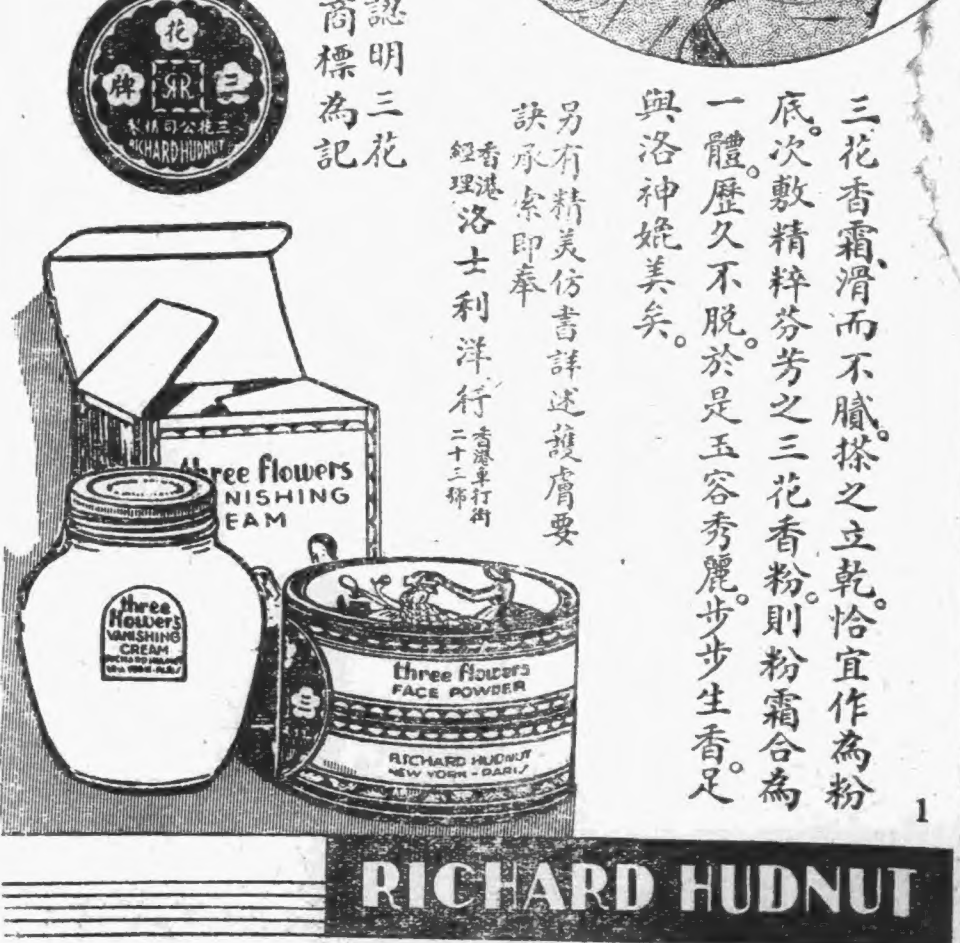 三花香霜、滑而不膩。搽之立乾。恰宜作為粉
底。次敷精粹芬芳之三花香粉。則粉霜合為
一體。歷久不脫。於是玉容秀麗。步步生香。足
與洛神媲美矣。
另有精美仿書詳述護膚要
訣承索即奉
香港
經理
洛士利洋行
香港卑打街
二十三號
認明三花
商標為記
花
三
牌
RR
三花公司精製
RICHARD HUDNUT
three flowers
NISHING
EAM
three
flowers
VANISHING
CREAM
RICHARD HUDNUT
NEW YORK-PARIS
three flowers
FACE POWDER
RICHARD HUDNUT
NEW YORK-PARIS
三
1
RICHARD HUDNUT